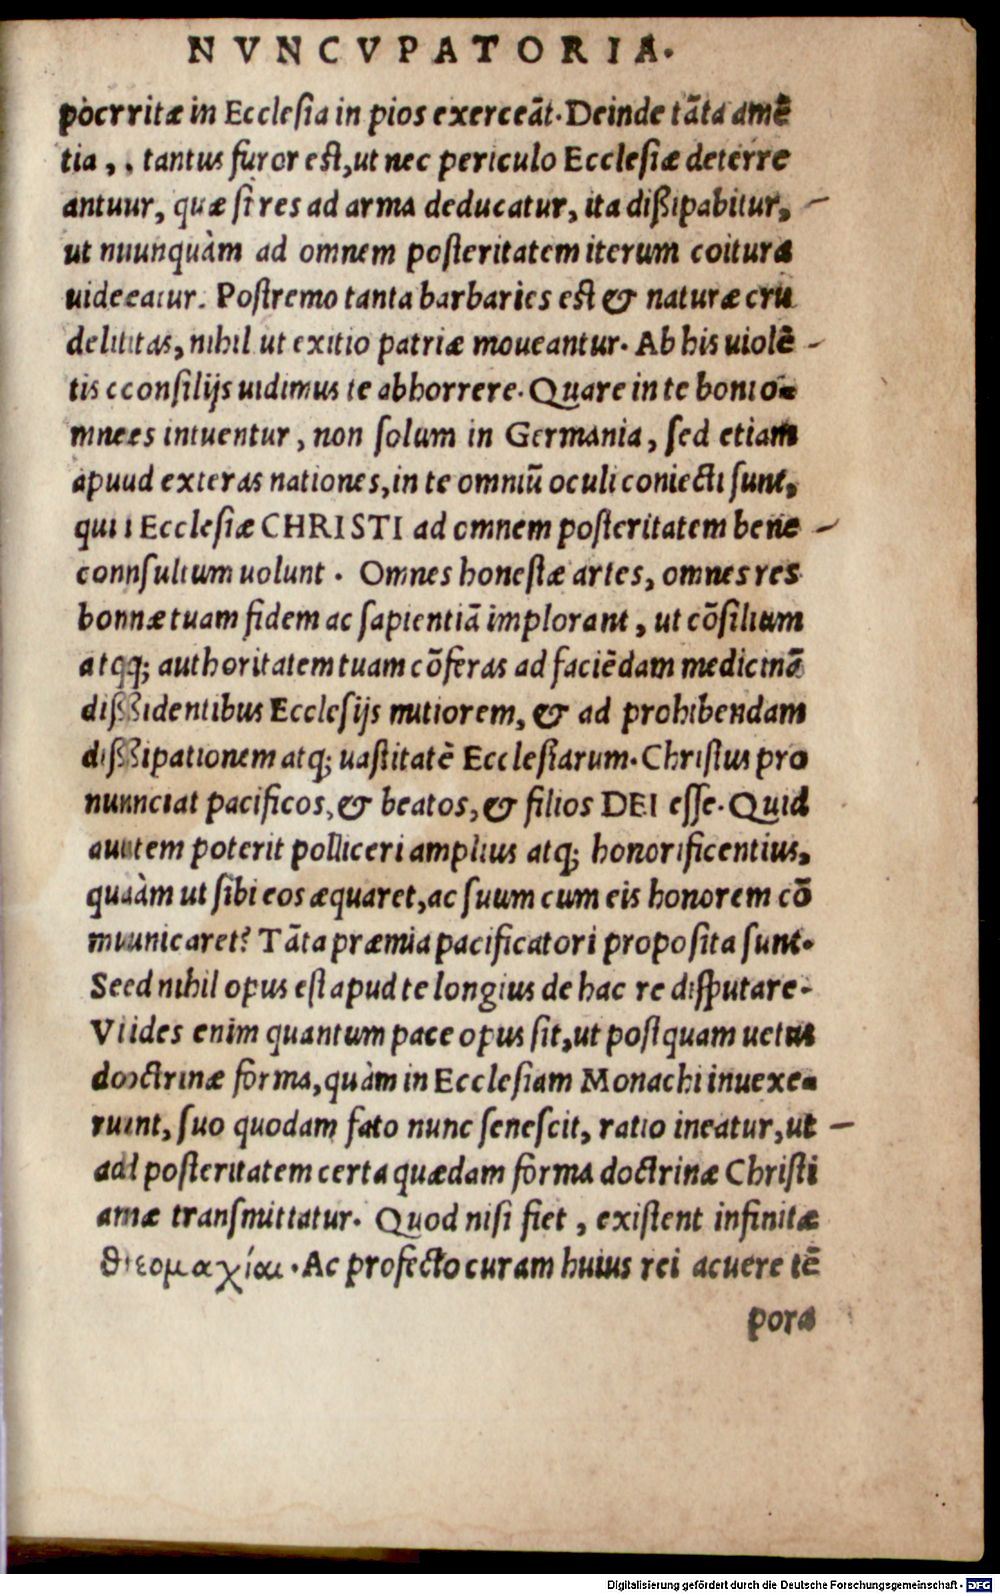 NVNCVPATORIA.
pocrritæ in Ecclesia in pios exerceāt. Deinde tāta amē
tia, , tantus furor est, ut nec periculo Ecclesiæ deterre
antuur, quæ si res ad arma deducatur, ita dißipabitur,
ut nuunquàm ad omnem posteritatem iterum coitura
uideeatur. Postremo tanta barbaries est & naturæ cru
delititas, nihil ut exitio patriæ moueantur. Ab his uiolē
tis cconsilijs uidimus te abhorrere. Quare in te boni o-
mnees intuentur, non solum in Germania, sed etiam
apuud exteras nationes, in te omniū oculi coniecti sunt,
qui i Ecclesiæ CHRISTI ad omnem posteritatem bene
connsultum uolunt. Omnes honestæ artes, omnes res
bonnæ tuam fidem ac sapientiā implorant, ut cōsilium
atqq; authoritatem tuam cōferas ad faciēdam medicinā
dißßidentibus Ecclesijs mitiorem, & ad prohibendam
dißßipationem atq; uastitatē Ecclesiarum. Christus pro
nunnciat pacificos, & beatos, & filios DEI esse. Quid
auutem poterit polliceri amplius atq; honorificentius,
quaàm ut sibi eos æquaret, ac suum cum eis honorem cō
muunicaret? Tāta præmia pacificatori proposita sunt.
Seed nihil opus est apud te longius de hac re disputare.
Viides enim quantum pace opus sit, ut postquam uetus
dooctrinæ forma, quàm in Ecclesiam Monachi inuexe-
ruunt, suo quodam fato nunc senescit, ratio ineatur, ut
add posteritatem certa quædam forma doctrinæ Christi
anæ transmittatur. Quod nisi fiet, existent infinitæ
θεομαχίαι. Ac profecto curam huius rei acuere tē
pora
Digitalisierung gefördert durch die Deutsche Forschungsgemeinschaft - DFG